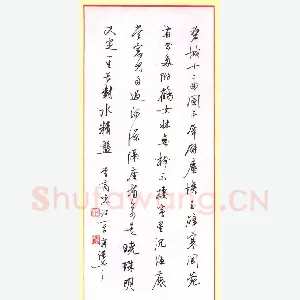 碧城十二曲阑干犀辟塵埃玉辟寒阆苑
有书多附鹤女牀無树不棲鸾星沉海底
當窗見雨過河源隔座看若是曉珠明
又定一生長對水精盤 李商隐
Shufawang.CN